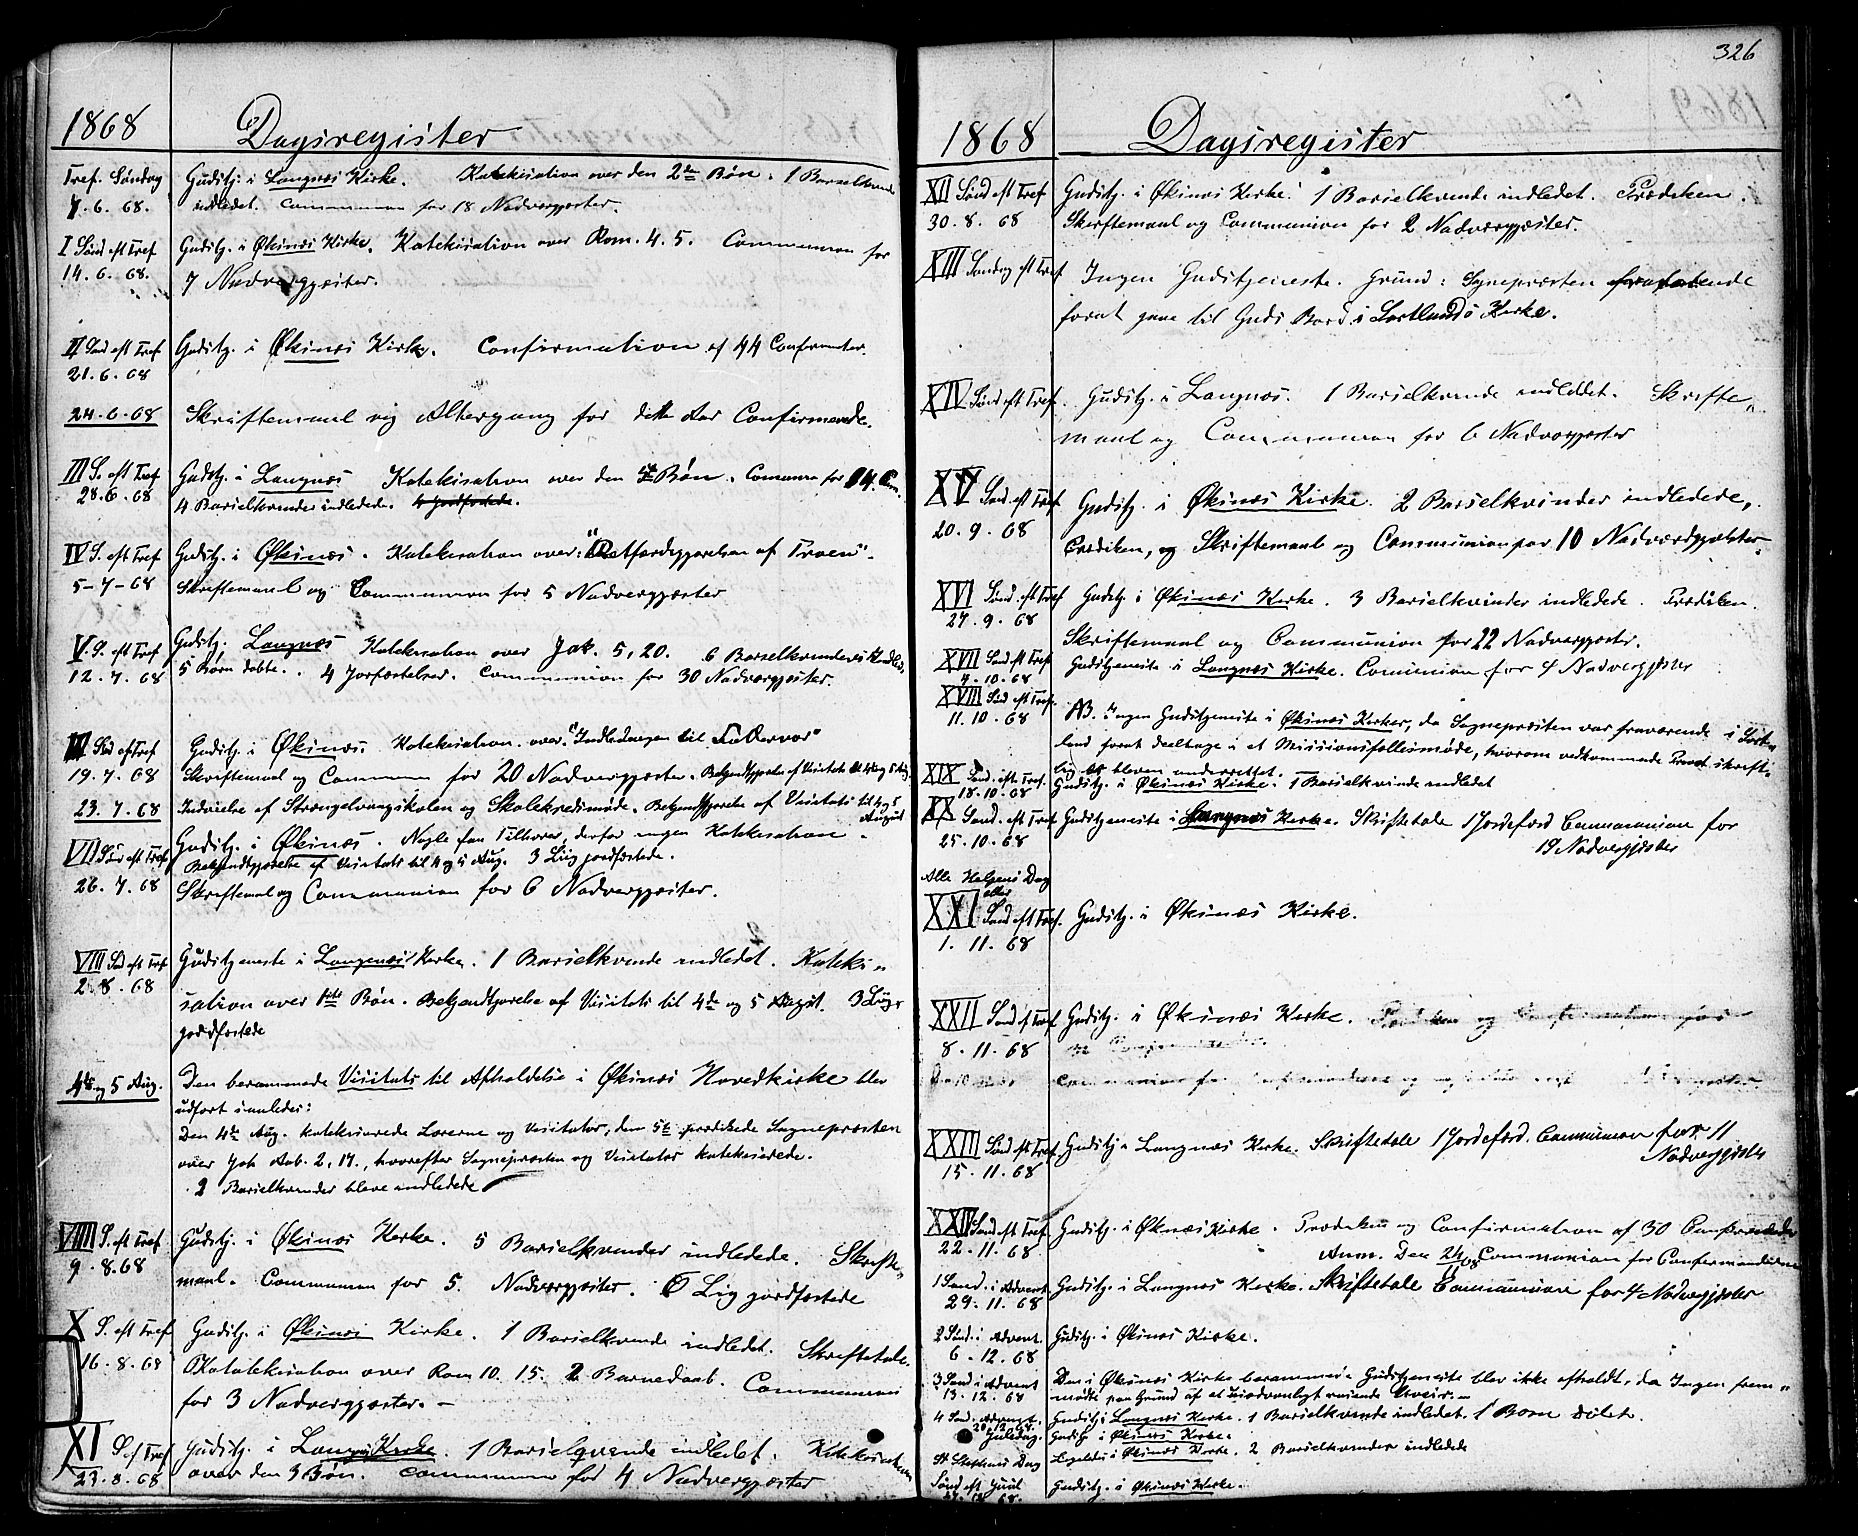 1868 Dagsregister
Tref. Søndag Gudstj. i Langnæs Kirke. Katekisation over den 2den Bøn. 1 Barselkvinde
7. 6. 68. indledet. Communion for 18 Nadvergjæster.
I Sønd eft Tref Gudstj. i Øksnæs Kirke. Katekisation over Rom. 4. 5. Communion for
14. 6. 68. 7 Nadvergjæster.
II Sønd eft Tref Gudstj. i Øksnæs Kirke. Confirmation af 44 Confirmanter.
21. 6. 68
24. 6. 68 Skriftemaal og Altergang for dette Aar Confirmerede.
III S. eft Tref Gudstj. i Langnæs Katekisation over den 5te Bøn. Communion for 14
28. 6. 68 4 Barselkvinder indledede. 4 Jordfæstede.
IV S. eft Tref Gudstj. i Øksnæs. Katekisation over: "Retfærdiggjørelsen af Troen".
5 - 7 - 68 Skriftemaal og Communion for 5 Nadvergjæster
V. S. eft Tref Gudstj. Langnæs Katekisation over Jak. 5, 20. 6 Barselkvinder indled.
12. 7. 68 5 Børn døbte. 4 Jorfæstelser. Communion for 30 Nadvergjæster.
Sød eft Tref Gudstj. i Øksnæs. Katekisation over "Indledningen til Fadervor"
19. 7. 68 Skriftemaal og Commun for 20 Nadvergjæster. Bekjendtgjørelse af Visitats til 4 og 5 Aug.
23. 7. 68 Indvielse af Strengelvaagskolen og Skolekredsmøde. Bekjendtgjørelse af Visitats til 4 og 5 August
VII Søn eft Tref Gudstj. i Øksnæs. Nogle faa Tilhører, derfor ingen Katekisation.
Bekjendtgjørelse af Visitats til 4 og 5 Aug. 3 Liig jordfæstede.
26. 7. 68 Skriftemaal og Communion for 6 Nadvergjæster.
VIII Sød eft Tref Gudstjeneste i Langenæs Kirke. 1 Barselkvinde indledet. Kateki„
2. 8. 68 sation over 1ste Bøn. Bekjendtgjørelse af Visitats til 4de og 5 August. 3 Liig
jordfæstede
4de og 5 Aug. Den berammede Visitats til Afholdelse i Øksnæs Hovedkirke blev
udført saaledes:
Den 4de Aug. katekiserede Lærerne og Visitator, den 5te prædikede Sognepræsten
over Joh Aab. 2, 17., hvorefter Sognepræsten og Visitator katekiserede.
2 Barselkvinder bleve indledede
VIIII S. eft Tref Gudstj. i Øksnæs Kirke. 5 Barselkvinder indledede. Skrifte„
9. 8. 68 maal. Communion for 5. Nadvergjæster. 6 Lig jordfæstede
X S. eft Tref Gudstj. i Øksnæs Kirke. 1 Barselkvinde indledet. Skriftetale.
16. 8. 68 Katekisation over Rom 10. 15. 2 Barnedaab. Communion
for 3 Nadvergjæster. -
XI S. ef Tref Gudstj. i Langnæs Kirke. 1 Barselqvinde indledet. Katekisation
23. 8. 68 over den 3 Bøn. Communion for 4 Nadvergjæster
326
1868 Dagsregister
XII Sønd eft Tref Gudstj. i Øksnæs Kirke. 1 Barselkvinde indledet. Prædiken.
30. 8. 68 Skriftemaal og Communion for 2 Nadvergjæster.
XIII Søndag eft Tref Ingen Gudstjeneste. Grund: Sognepræsten fraværende
forat gaae til Guds Bord i Sortlands Kirke.
XIV Sønd eft Tref. Gudstj. i Langnæs. 1 Barselkvinde indledet. Skrifte„
maal og Communion for 6 Nadvergjæster
XV Sønd. eft Tref Gudstj. i Øksnæs Kirke. 2 Barselkvinder indledede,
20. 9. 68 Prædiken, og Skriftemaal og Communion for 10 Nadvergjæster.
XVI Sønd. eft Tref Gudstj. i Øksnæs Kirke. 3 Barselkvinder indledede. Prædiken.
27. 9. 68 Skriftemaal og Communion for 22 Nadvergjæster.
XVII Sønd eft Tref Gudstjeneste i Langnæs Kirke. Comunion for 4 Nadvergjæster
4. 10. 68
XVIII Sød eft Tref. NB. Ingen Gudstjeneste i Øksnæs Kirke, da Sognepræsten var fraværende i Sort„
11. 10. 68 land forat deeltage i et Missionsfællesmøde, hvorom vedkommende Provst skrift„
lig er bleven underrettet.
XIX Sønd. eft. Tref. Gudstj. i Øksnæs Kirke. 1 Barselkvinde indledet
18. 10. 68
XX Sønd. eft Tref Gudstjeneste i Langnæs Kirke. Skriftetale 1 Jordefærd Communion for
25. 10. 68 19 Nadvergjæster
Alle Helgens Dag
eller
XXI Sønd eft Tref. Gudstj. i Øksnæs Kirke.
1. 11. 68
XXII Sønd ef Tref Gudstj. i Øksnæs Kirke. Prædiken og
8. 11. 68
Communion for
XXIII Sønd eft Tref Gudstj i Langnæs Kirke. Skriftetale 1 Jordefærd. Communion for 11
15. 11. 68 Nadvergjæster
XXIV Sønd eft Tref Gudstj. i Øksnæs Kirke. Prædiken og Confirmation af 30 Confirmander
22. 11. 68 Anm. Den 24/11 68 Communion for Confirmanderne
1 Sønd. i Advent Gudstj. i Langnæs Kirke. Skriftetale Communion for 4 Nadvergjæster
29. 11. 68
2 Sønd. i Advent. Gudstj. i Øksnæs Kirke.
6. 12. 68
3 Sønd i Advent Den i Øksnæs Kirke berammede Gudstjeneste blev ikke afholdt, da Ingen frem„
13. 12. 68 mødte paa Grund af et usædvanligt rasende Uveir. -
4 Sød. Advent. Gudstj i Langnæs Kirke. 1 Barselkvinde indledet. 1 Barn døbt.
20. 12. 68
Juledag. Gudstj. i Øksnæs Kirke.
St Stephans Dag Ligeledes i Øksnæs Kirke. 2 Barselkvinder indledede
Sønd eft Juul Gudstj. i Øksnæs Kirke.